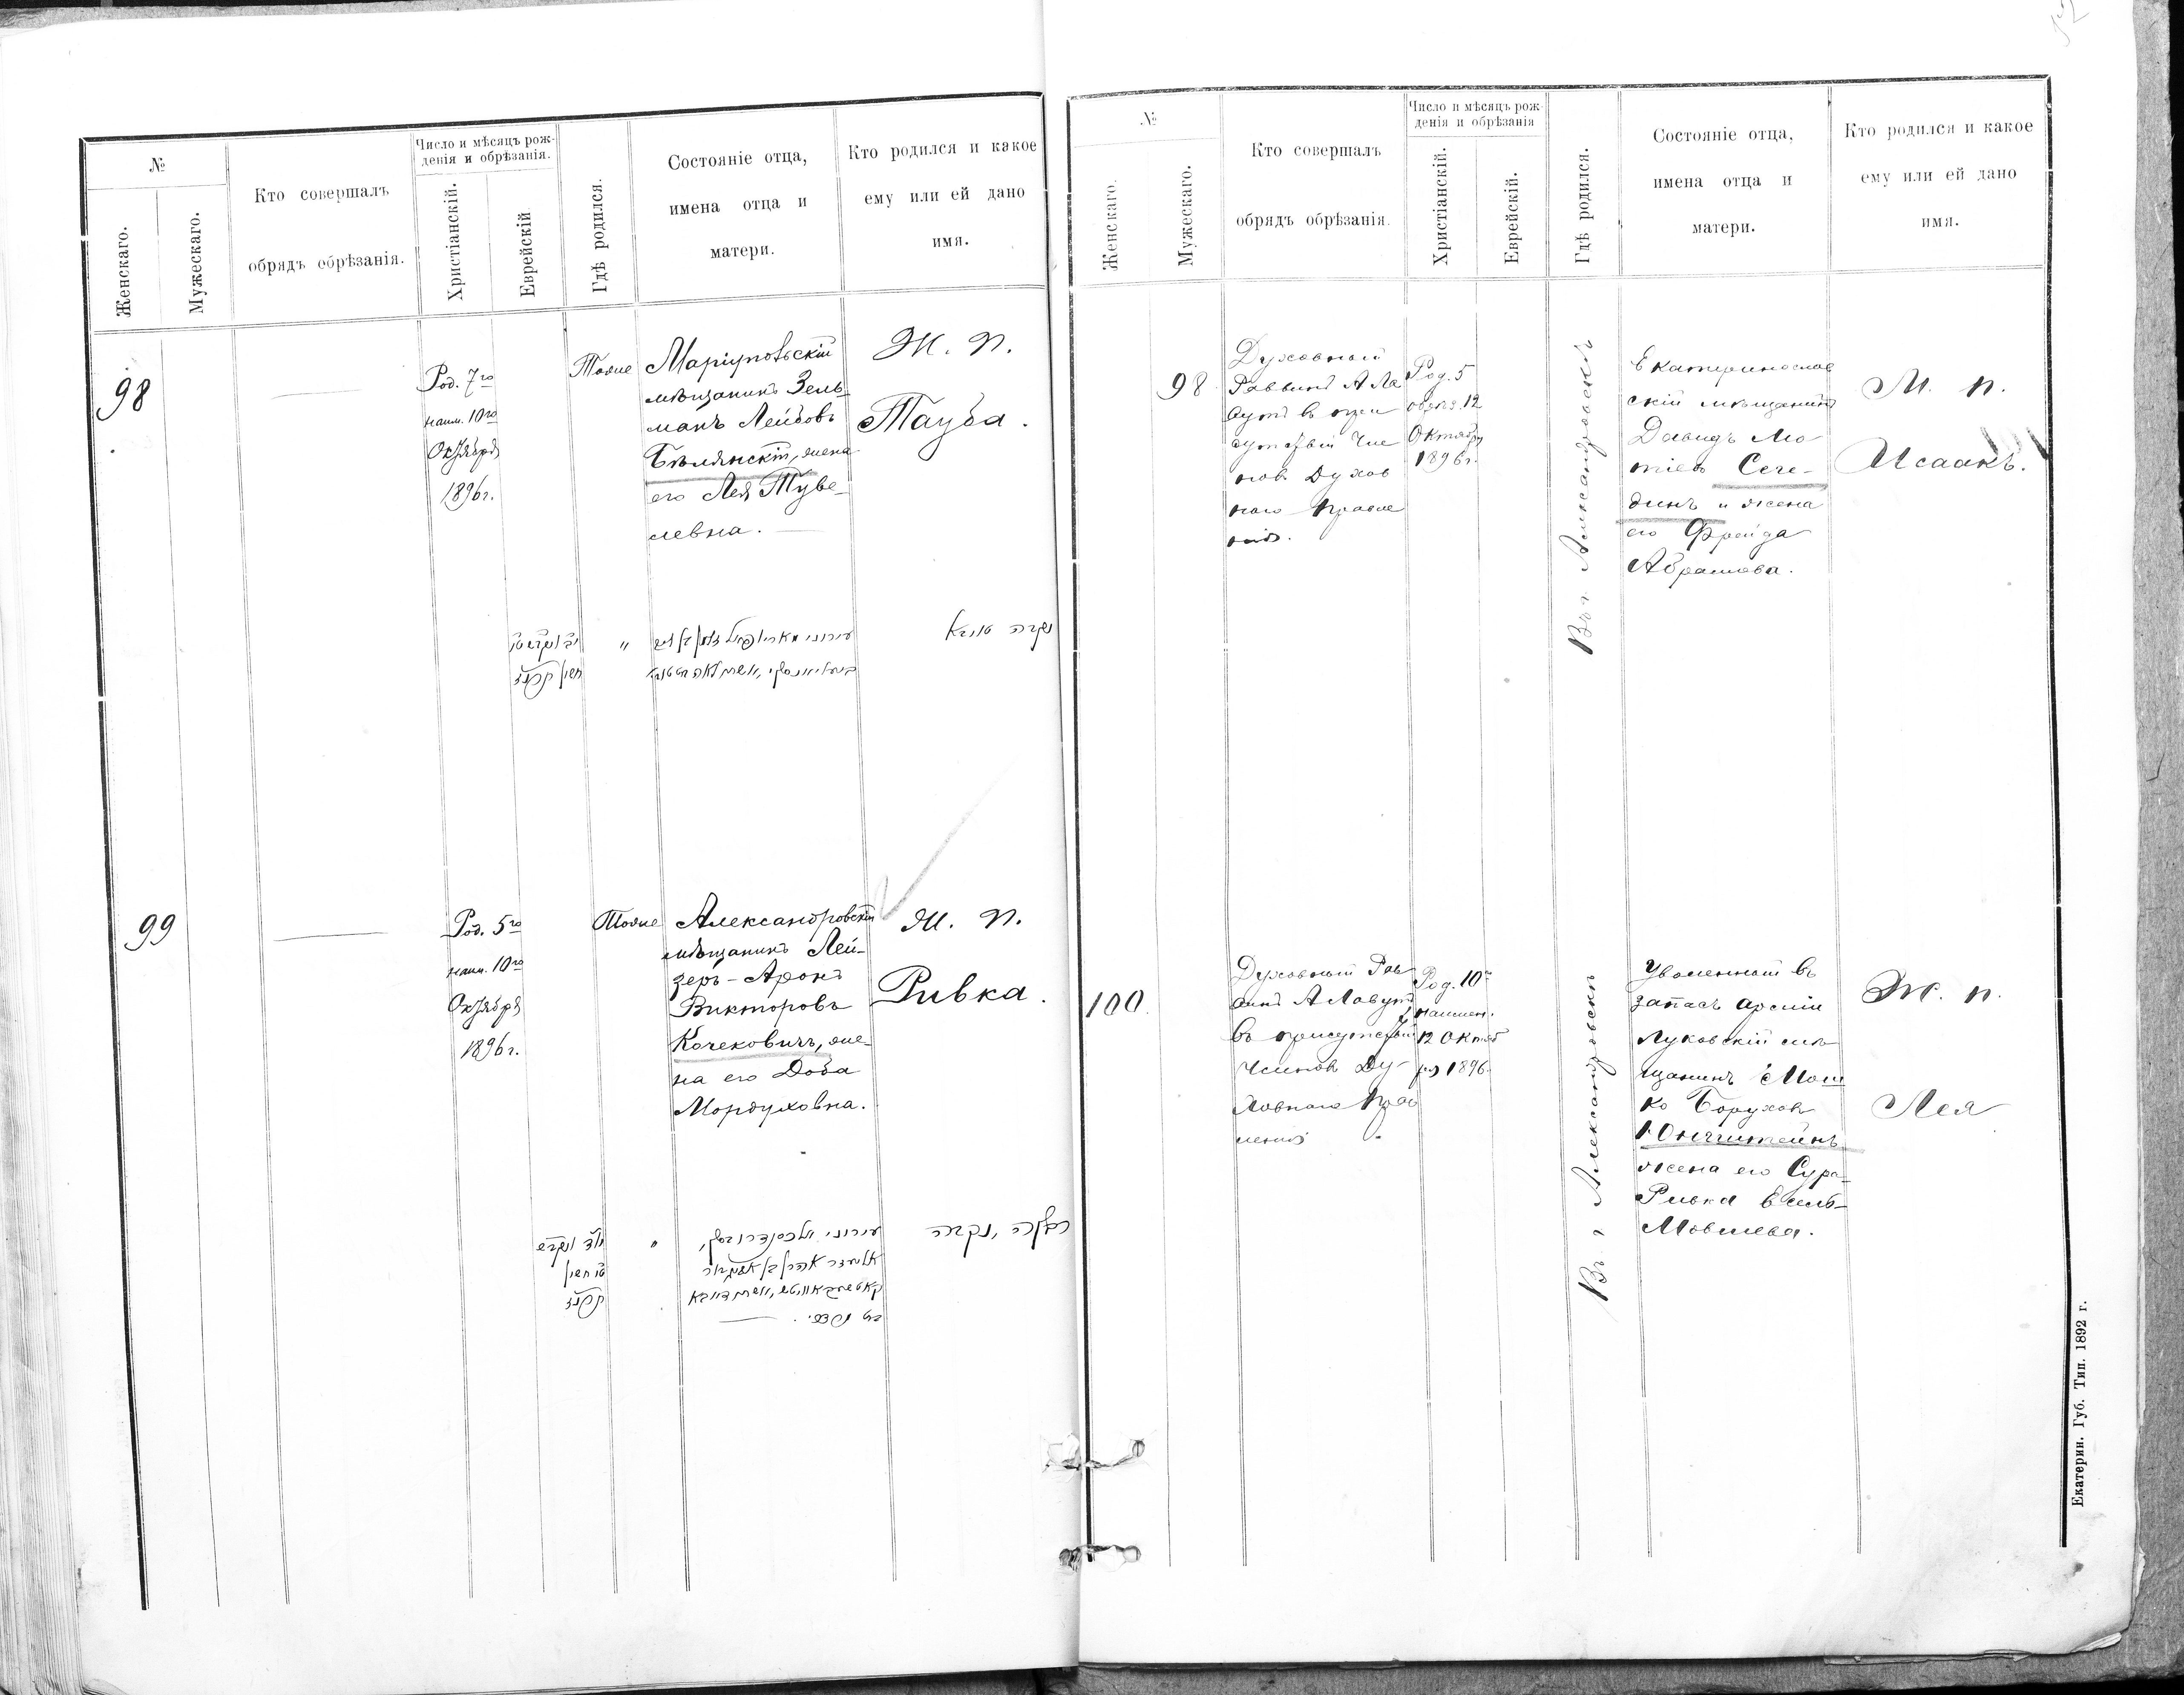 №
Женскаго.
Мужескаго.
Кто совершалъ
обрядъ обрѣзанія.
Число и мѣсяцъ рож-
денія и обрѣзанія.
Христіанскій.
Еврейскій
Гдѣ родился.
Состояніе отца,
имена отца и
матери.
Кто родился и какое
ему или ей дано
имя.
98
Род. 7го
наим. 10го
Октября
1896г.
Тоже
Маріупольскій
мѣщанинъ Зель-
манъ Лейбовъ
Бѣлянскій, жена
его Лея Туве-
левна.
Ж. п.
Тауба.
חשון
"
עירוני
נקבה טויבא
99
Род. 5го
наим. 10го
Октября
1896г.
Тоже
Александровскій
мѣщанинъ Лей-
зеръ-Аронъ
Викторовъ
Кочековичъ, же-
на его Доба
Мордуховна.
Ж. п.
Ривка.
חשון
"
עירוני אלכסנדרובסק,
רבקה, נקבה
№
Женскаго.
Мужескаго.
Кто совершалъ
обрядъ обрѣзанія.
Число и мѣсяцъ рож-
денія и обрѣзанія
Христіанскій.
Еврейскій.
Гдѣ родился.
Состояніе отца,
имена отца и
матери.
Кто родился и какое
ему или ей дано
имя.
98
Духовный
Раввинъ А Ла
вутъ въ при
сутствіи Чле
новъ Духов
наго Правле
нія.
Род. 5
обрѣз. 12
Октября
1896г.
Въ г Александровскѣ
Екатеринослав
скій мѣщанинъ
Давидъ Мо
тіевъ Сече-
динъ и жена
его Фрейда
Абрамова.
М. п.
Исаакъ.
100
Духовный Рав
винъ А Лавутъ
въ присутствіи
Членовъ Ду-
ховнаго Прав
ленія.
Род. 10го
наимен.
12 Октяб
ря 1896
Въ г Александровскѣ
Уволенный въ
запасъ арміи
Луковскій мѣ
щанинъ Мош
ко Боруховъ
Юнгштейнъ
жена его Сура-
Ривка
Мовшева.
Ж. п.
Лея
Екатерин. Губ. Тип. 1892 г.